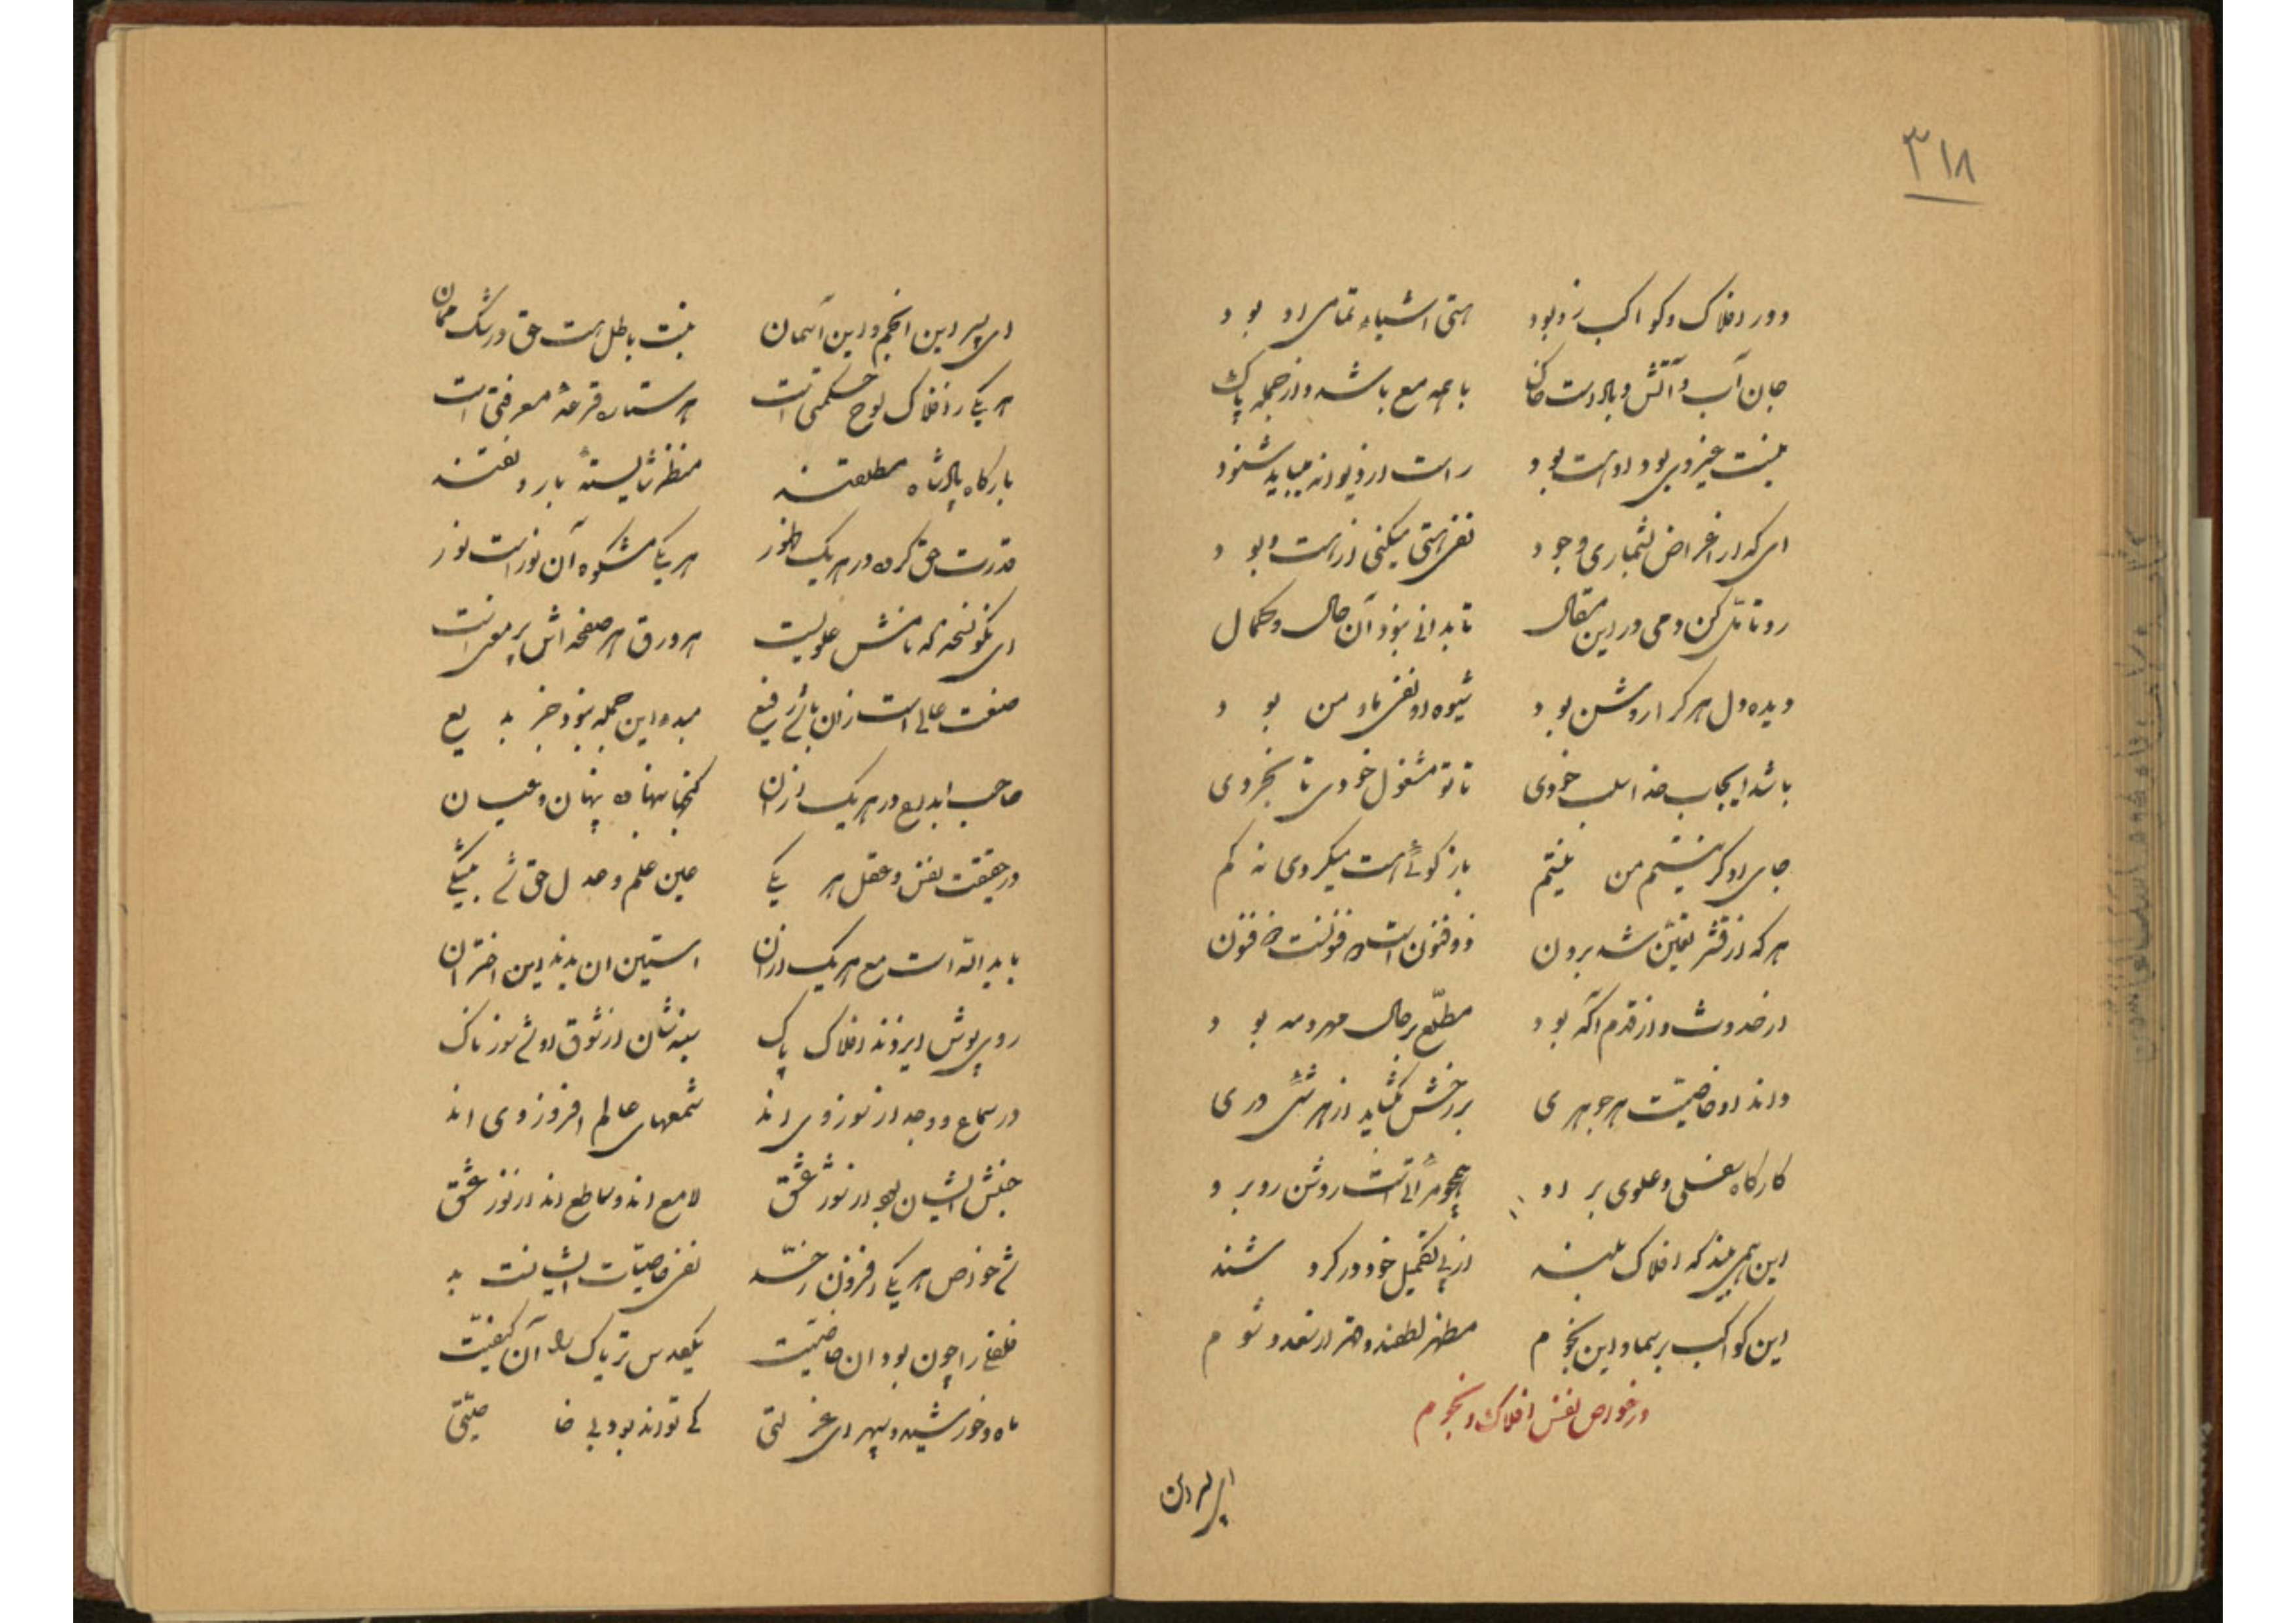 ۳۱۸
دور افلاک و کواکب زو بود هستی اشیاء تمامی او بود
جان آب و آتش و باد است خاک با همه مع باشد و از جمله پاک
نیست غیر وی بود او هست بود راست از دیوانه میباید شنود
ای که از اغراض بشماری وجود نفی هستی میکنی از هست و بود
رو تأمل کن دمی در این مقال تا بدانی نبود آن حال و کمال
دیده دل هر کرا روشن بود شیوه او نفی ما و من بود
باشد ایجاب خدا سلب خودی تا تو مشغول خودی نابخردی
جای او کر نیستم من نیستم باز کوئی هست میکردی نه کم
هر که از قشر تعین شد برون ذوفنون است
از حدوث و از قدم آکه بود مطلع بر حال مهر و مه بود
داند او خاصیت هر جوهری بر رخش بکشاید از هر شئ دری
کارکاه سفلی و علوی بر او همچو مرآتست روشن روبرو
این همی بیند که افلاک بلند از پی تکمیل خود در کردشند
این کواکب بر سما و این نجوم مظهر لطفند و قهر از سعد و شوم
در خواص نفس افلاک و نجوم
ای پسر این
ای پسر این انجم و این آسمان نیست باطل هست حق در شک ممان
هر یکی ز افلاک لوح حکمتی است هر ستاره قرعه معرفتی است
بارکاه پادشاه مطلقند منظر شایسته بار
قدرت حق کرده در هر یک ظهور هر یکی مشکوه آن نور است نور
ای نکو نسخه که نامش علویست هر ورق هر صفحه اش پر معنی است
صنعت عالی است زان بانی رفیع مبدء این جمله نبود جز بدیع
صاحب ابداع در هر یک از آن کنجها بنهاده پنهان و عیان
در حقیقت نفس و عقل هر یکی عین علم و عدل حق شد بیشکی
با ید الله است مع هر یک از آن آستین آن یدند این اختران
روی پوش ایزدند افلاک پاک سینه شان از شوق او شد سوزناک
در سماع و وجد از نور وی اند شمعهای عالم افروز وی اند
جنبش ایشان بود از شور عشق لامع اند و ساطع اند از نور عشق
شد خواص هر یکی افزون ز حد نفی خاصیات ایشانست بد
فلفلی را چون بود آن خاصیت یکعدس تریاک را آن کیفیت
ماه و خورشید و سپهر ای عزلتی کی تواند بود بی خاصیتی